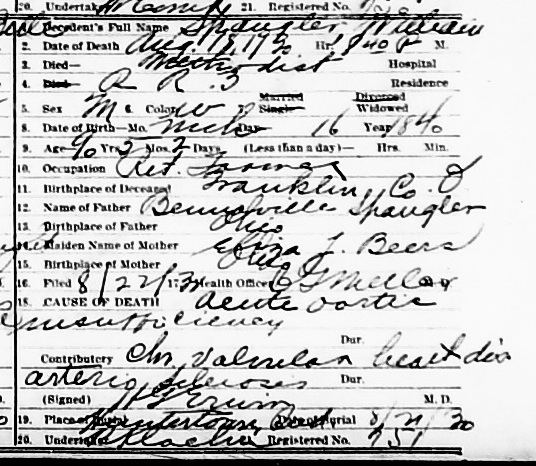 20. Undertaker 21. Registered No.
1. Decedent's Full Name Spangler, William
2. Date of Death Aug. 19, 1930 Hr. 8 40 P M.
3. Died— Methodist Hospital
4. Died— R R. 3 Residence
Married Divorced
5. Sex M 6. Color W 7. Single Widowed
8. Date of Birth—Mo. Mch Day 16 Year 1840
9. Age 90 Yrs. 5 Mos. 3 Days (Less than a day)— Hrs. Min.
10. Occupation Ret. Farmer
11. Birthplace of Deceased Franklin Co. O
12. Name of Father Spangler
13. Birthplace of Father Ohio
14. Maiden Name of Mother Eliza J. Beers
15. Birthplace of Mother Ohio
16. Filed 8/22/30 17. Health Officer
18. CAUSE OF DEATH Acute aortic
insufficiency
Dur.
Contributory Chr. Valvular heart dis
arterio scleroses Dur.
(Signed) M. D.
19. Place of Burial Huntertown Date of Burial 8/21/30
20. Undertaker Registered No. 751